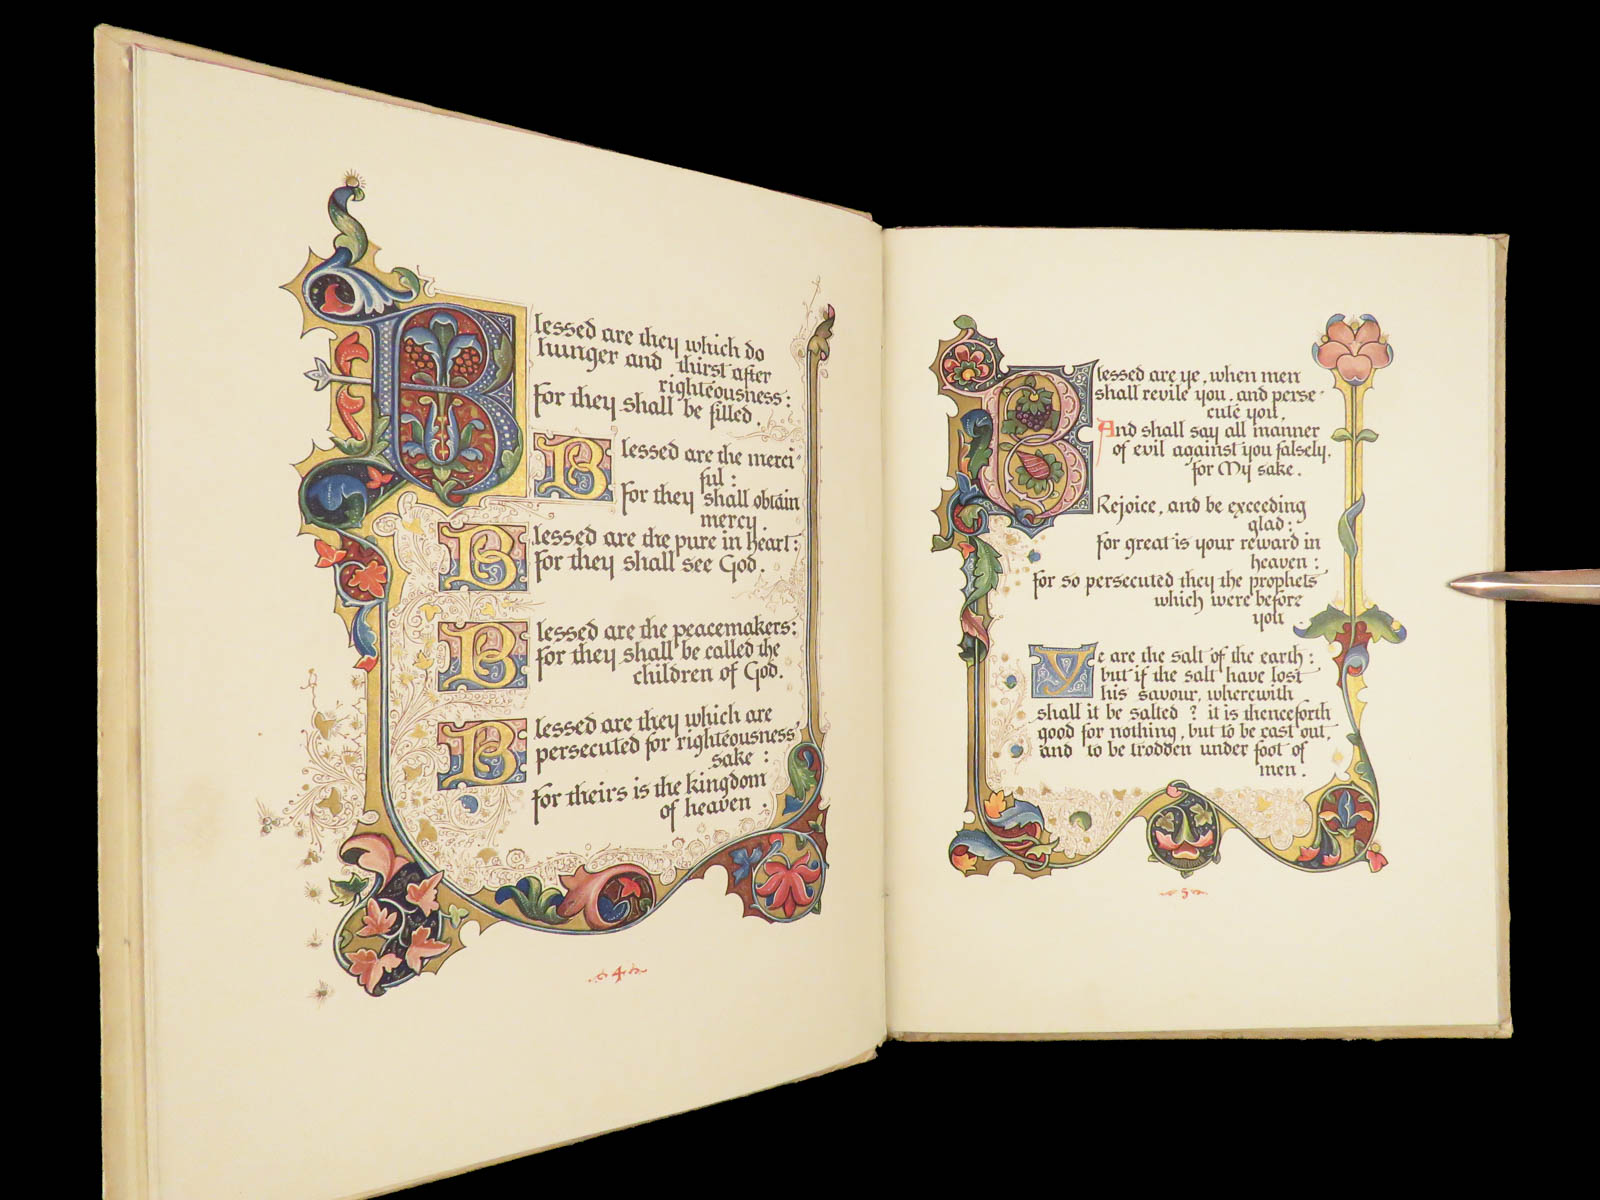 Blessed are they which do
hunger and thirst after
righteousness:
For they shall be filled.
Blessed are the merci-
ful:
For they shall obtain
mercy.
Blessed are the pure in heart:
for they shall see God.
Blessed are the peacemakers:
for they shall be called the
children of God.
Blessed are they which are
persecuted for righteousness'
sake:
For theirs is the kingdom
of heaven.
4
Blessed are ye, when men
shall revile you, and perse-
cute you,
And shall say all manner
of evil against you falsely,
for My sake.
Rejoice, and be exceeding
glad:
for great is your reward in
heaven:
for so persecuted they the prophets
which were before
you
Ye are the salt of the earth:
but if the salt have lost
his savour, wherewith
shall it be salted? it is thenceforth
good for nothing, but to be cast out,
and to be trodden under foot of
men.
5